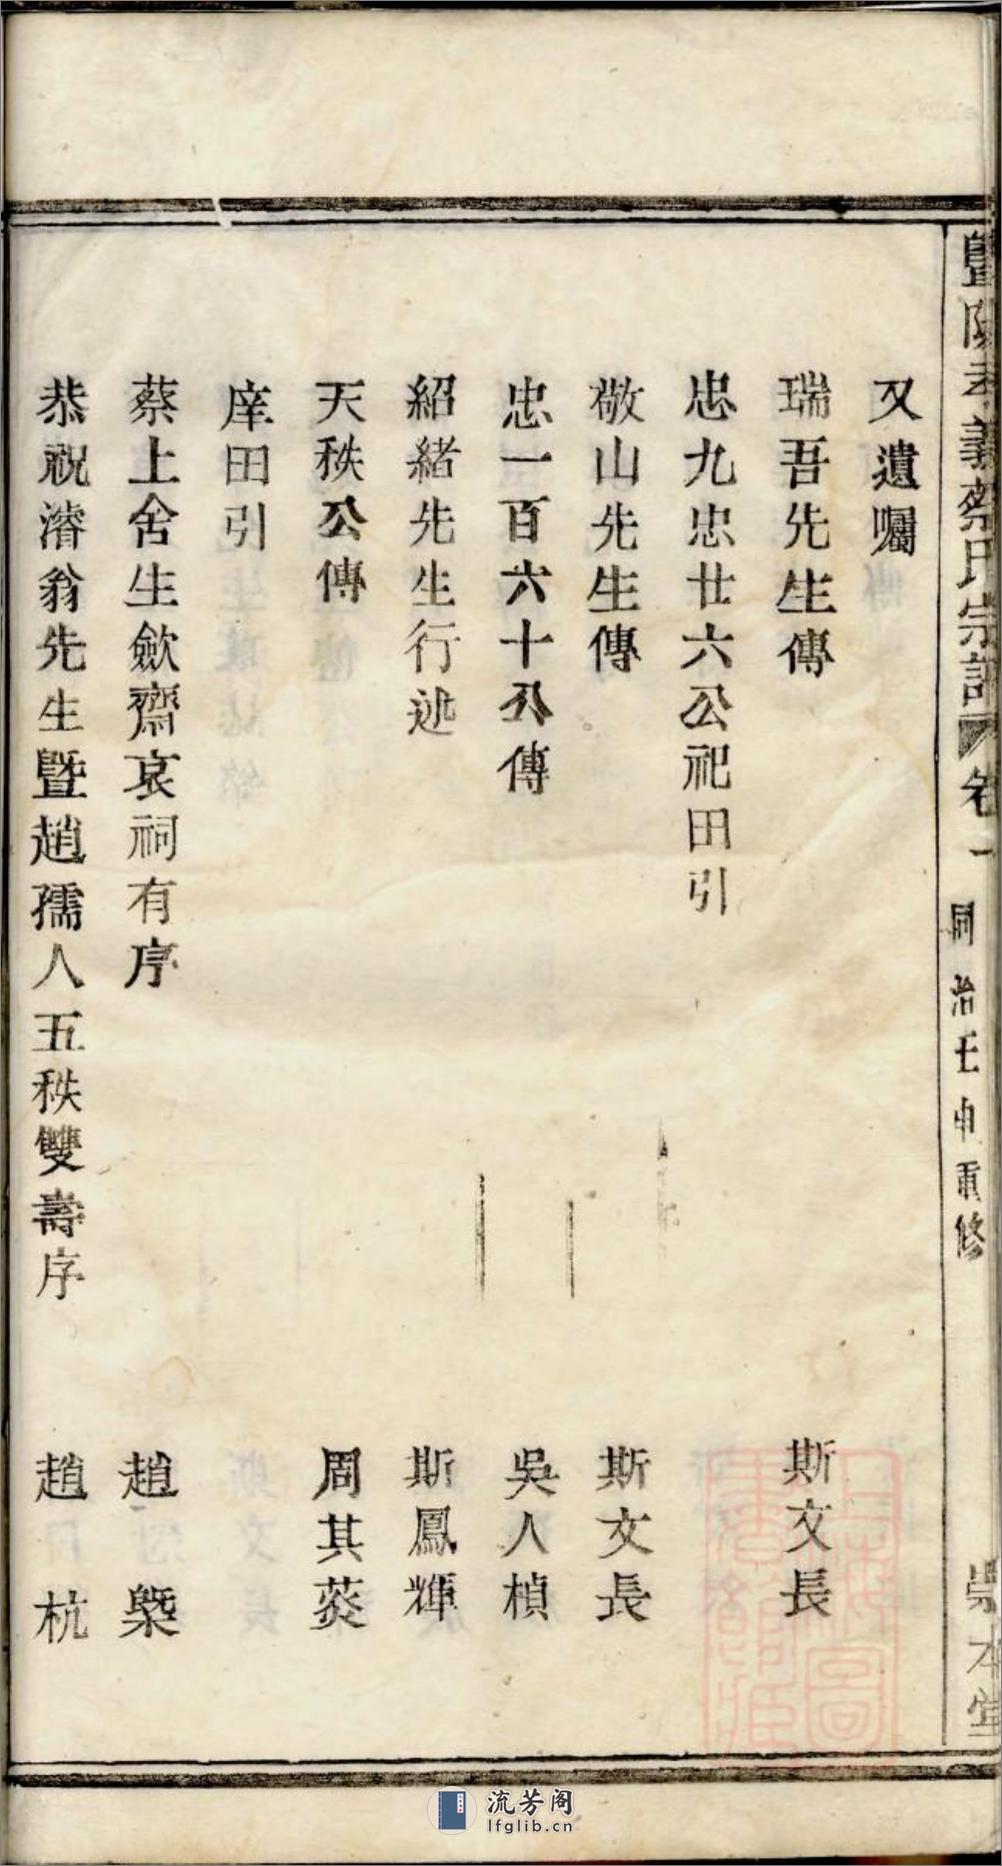 暨陽孝義蔡氏宗譜 卷一 同治壬申重修 崇本堂
又遺囑
瑞吾先生傳 斯文長
忠九忠廿六公祀田引
敬山先生傳 斯文長
忠一百六十公傳 吳人楨
紹緒先生行述 斯鳳輝
天秩公傳 周其葵
庠田引
蔡上舍生歛齋哀祠有序 趙槩
恭祝濬翁先生暨趙孺人五秩雙壽序 趙杭
流芳阁
lfglib.cn